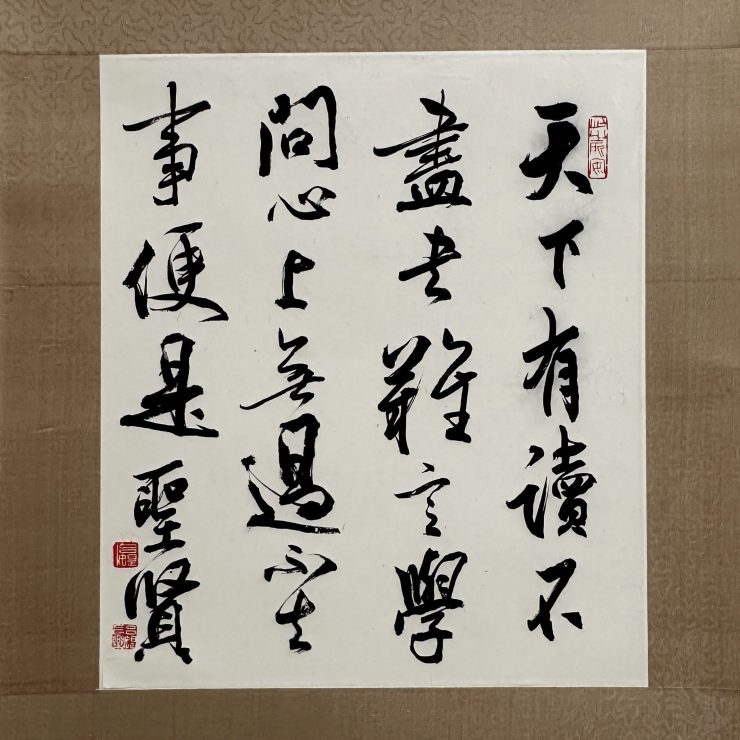 天下有讀不
盡書難言學
問心上無過不去
事便是聖賢